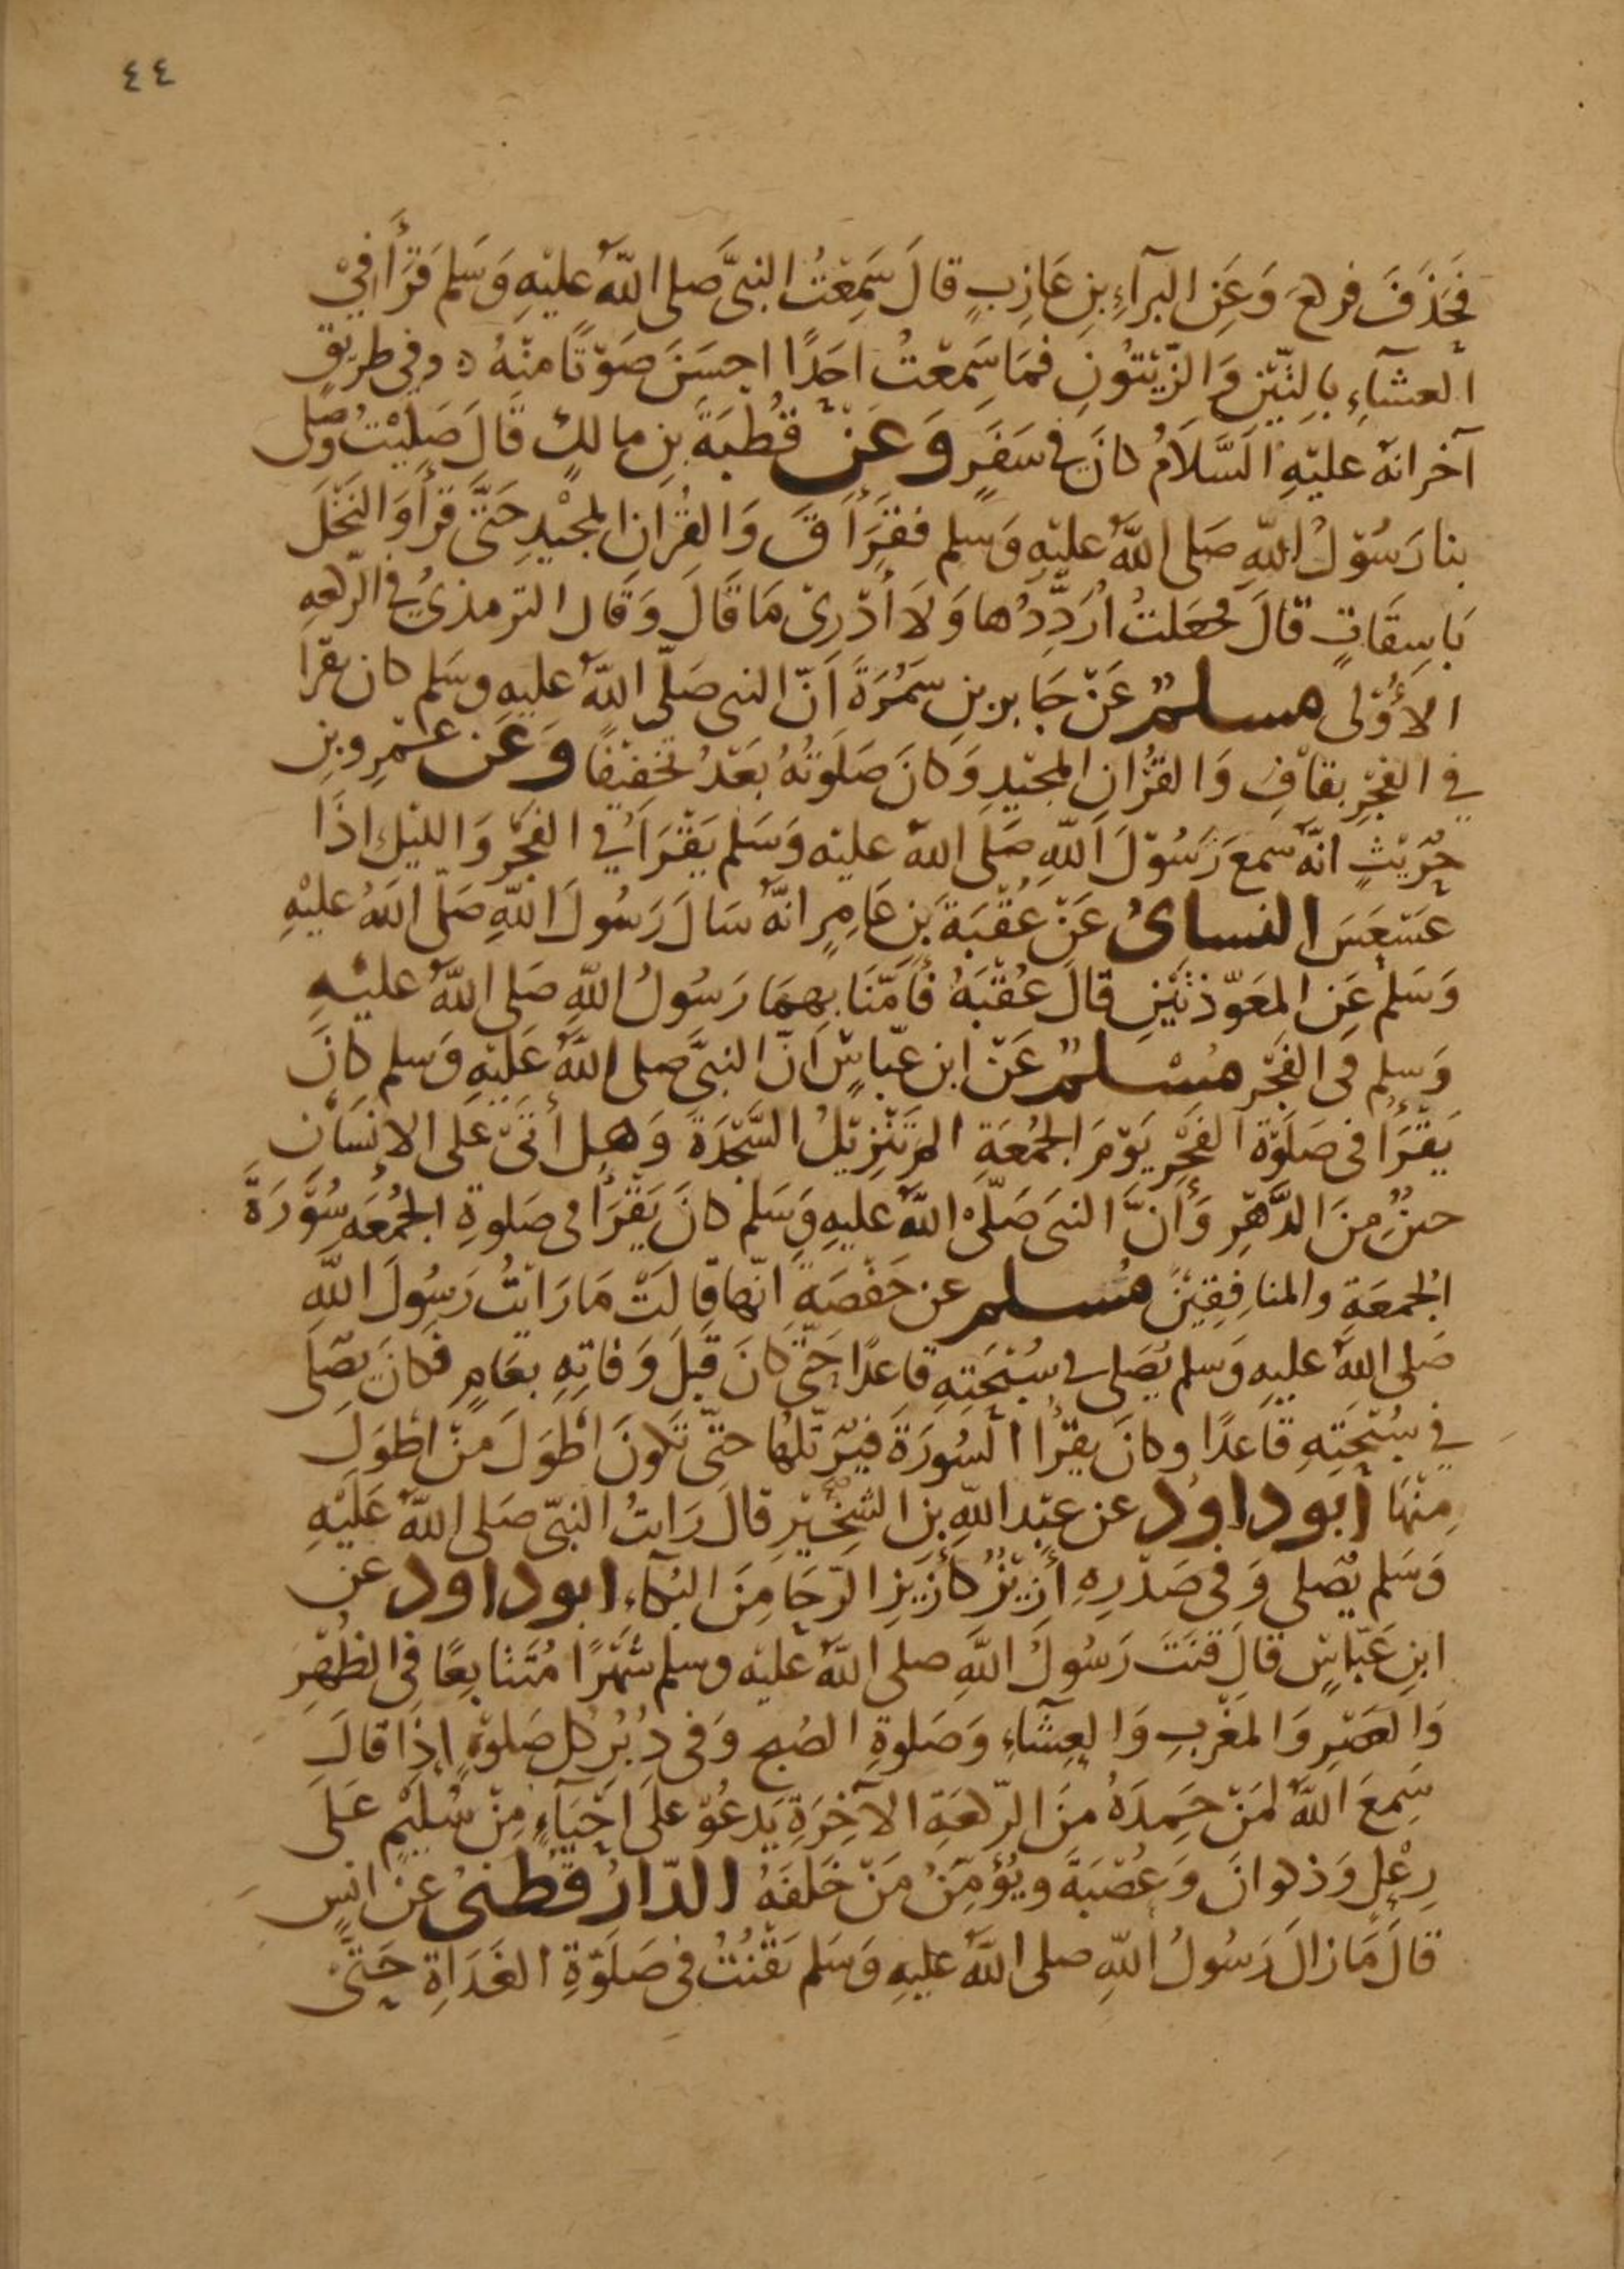 ٤٤
فَحَذَفَ فركع وَعَنِ البَرآءِ بنِ عَازِبٍ قالَ سَمِعْتُ النبىَّ صلى اللهُ عليْهِ وَسَلم قَرَأَ فِيْ
العشآءِ بِالتِّيْنِ وَالزَّيْتُونِ فمَا سَمِعْتُ احَدًا احسَنَ صَوْتًا منْهُ ه وفى طريْقٍ
آخر انهُ عليْهِ السَّلَامُ كانَ فى سَفَرٍ وَعَنْ قُطْبَةَ بنِ مالكٍ قَالَ صَلَّيْتُ وَصَلى
بنا رَسُوْلُ اللهِ صَلى اللهُ عليْهِ وَسلم فقَرَأَ قَ وَالقُرانِ المجيْدِ حَتَّى قَرأَ وَالنَخْلَ
بَاسِقَاتٍ قالَ فجعَلتُ اُرَدِّدُها وَلَا أَدْرِىْ مَا قَالَ وَقَال الترمذىُّ فى الركعهِ
الأُوْلى مسلمٌ عَنْ جَابر بنِ سَمُرَةَ اَنّ النبى صَلّى اللهُ عليهِ وسَلم كان يقرا
في الفَجْرِ بقافِ وَالقُرْانِ المجيْدِ وَكانَ صَلَوتُهُ بَعْدُ تَخْفِيْفًا وَعَن عَمْرِو بنِ
حُرَيْثٍ انّه سمعَ رَسُوْلَ اللهِ صَلى اللهُ عليْه وَسَلم يَقْرَأُ في الفَجْرِ وَالليْلِ اِذَا
عَسْعَسَ النسائُ عَنْ عُقْبَةَ بنِ عَامِرٍ انّه سَالَ رَسُولَ اللهِ صَلّى اللهُ عليْهِ
وَسَلم عَنِ المعَوّذتَيْنِ قالَ عُقْبَةُ فأَمَّنَا بهِمَا رَسُولُ اللهِ صَلى اللهُ عليْهِ
وَسلم فى الفَجْرِ مُسْلمٌ عَنْ ابن عبّاسٍ اَنّ النبىَّ صلى اللهُ عَلَيْهِ وَسلم كانَ
يَقْرَأُ فى صَلَوْة الفَجْرِ يَوْمَ الجُمُعَةِ الم تَنْزِيْلُ السَّجْدَةَ وَهل أَتَىْ عَلى الانْسَان
حينٌ مِنَ الدَّهْرِ وَأَنَّ النبىَ صَلّىْ اللهُ عليهِ وَسَلم كانَ يَقْرَأُ فى صَلوةِ الجُمُعَه سُوَرَةَ
الجُمعَة والمنافِقِيْنَ مُسلم عن حَفْصَةَ انّها قالَتْ مَا رَايْتُ رَسُولَ اللهِ
صَلى اللهُ عليهِ وَسلم يُصَلى فى سُبْحَتِهِ قاعدًا حَتّى كانَ قَبْلَ وَفاتِهِ بعَامٍ فَكانَ يُصَلى
في سُبْحَتِهِ قاعدًا وكانَ يقْرأُ السُورَةَ فيُرَتّلهُا حتّى تَكونَ أَطْوَلَ مِنْ أَطْوَلَ
مِنْهَا أبو داوُد عن عبْد اللهِ بنِ الشِّخِّيْرِ قالَ رَايتُ النبىّ صَلى اللهُ عَلَيْهِ
وَسَلم يُصلى وَفى صَدْرِهِ أَزِيْزٌ كأَزِيْزِ الرّحَا مِنَ البُكَآءِ ابو داود عن
ابنِ عَبّاسٍ قالَ قنَتَ رَسُولُ اللهِ صلى اللهُ عليْه وسلم شَهْرًا مُتَتابِعًا فى الظُهْرِ
وَالعَصْرِ وَالمغْرِبِ وَالعِشَآءِ وَصَلوةِ الصُبح وَفى دُبُرِ كل صَلوْةٍ اِذَا قالَ
سَمِعَ اللهُ لمَنْ حَمِدَهُ منَ الرّكعَةِ الآخِرَةِ يَدعُوْ عَلى اَحْيَآءٍ مِنْ سُلَيْمٍ عَلى
رِعْلٍ وَذكوانَ وَعُصَيَّةَ ويُؤمّنُ مَنْ خَلفَهُ الدّارُقُطنىُ عَنْ انسٍ
قالَ مَا زالَ رَسُولُ اللهِ صلى اللهُ عليهِ وَسَلم يَقْنُتُ فى صَلَوْةِ الغَدَاةِ حَتَّىْ